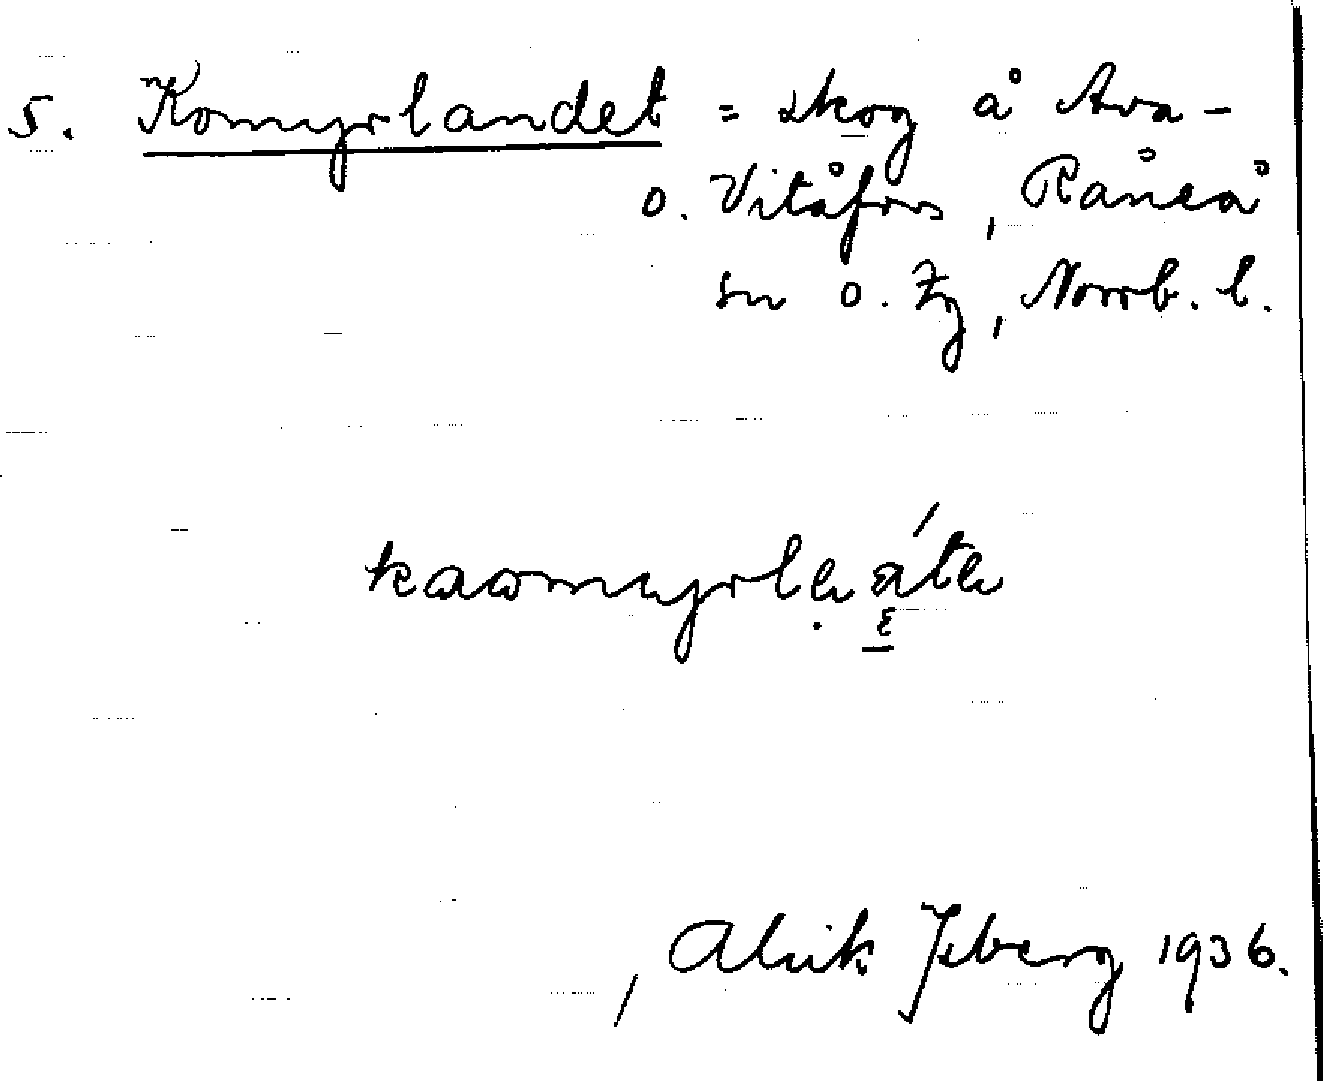 5. Komyrlandet = skog å Ava-
o. Vitåfors, Råneå
sn o. tg, Norrb. l.
Alrik Ysberg 1936.